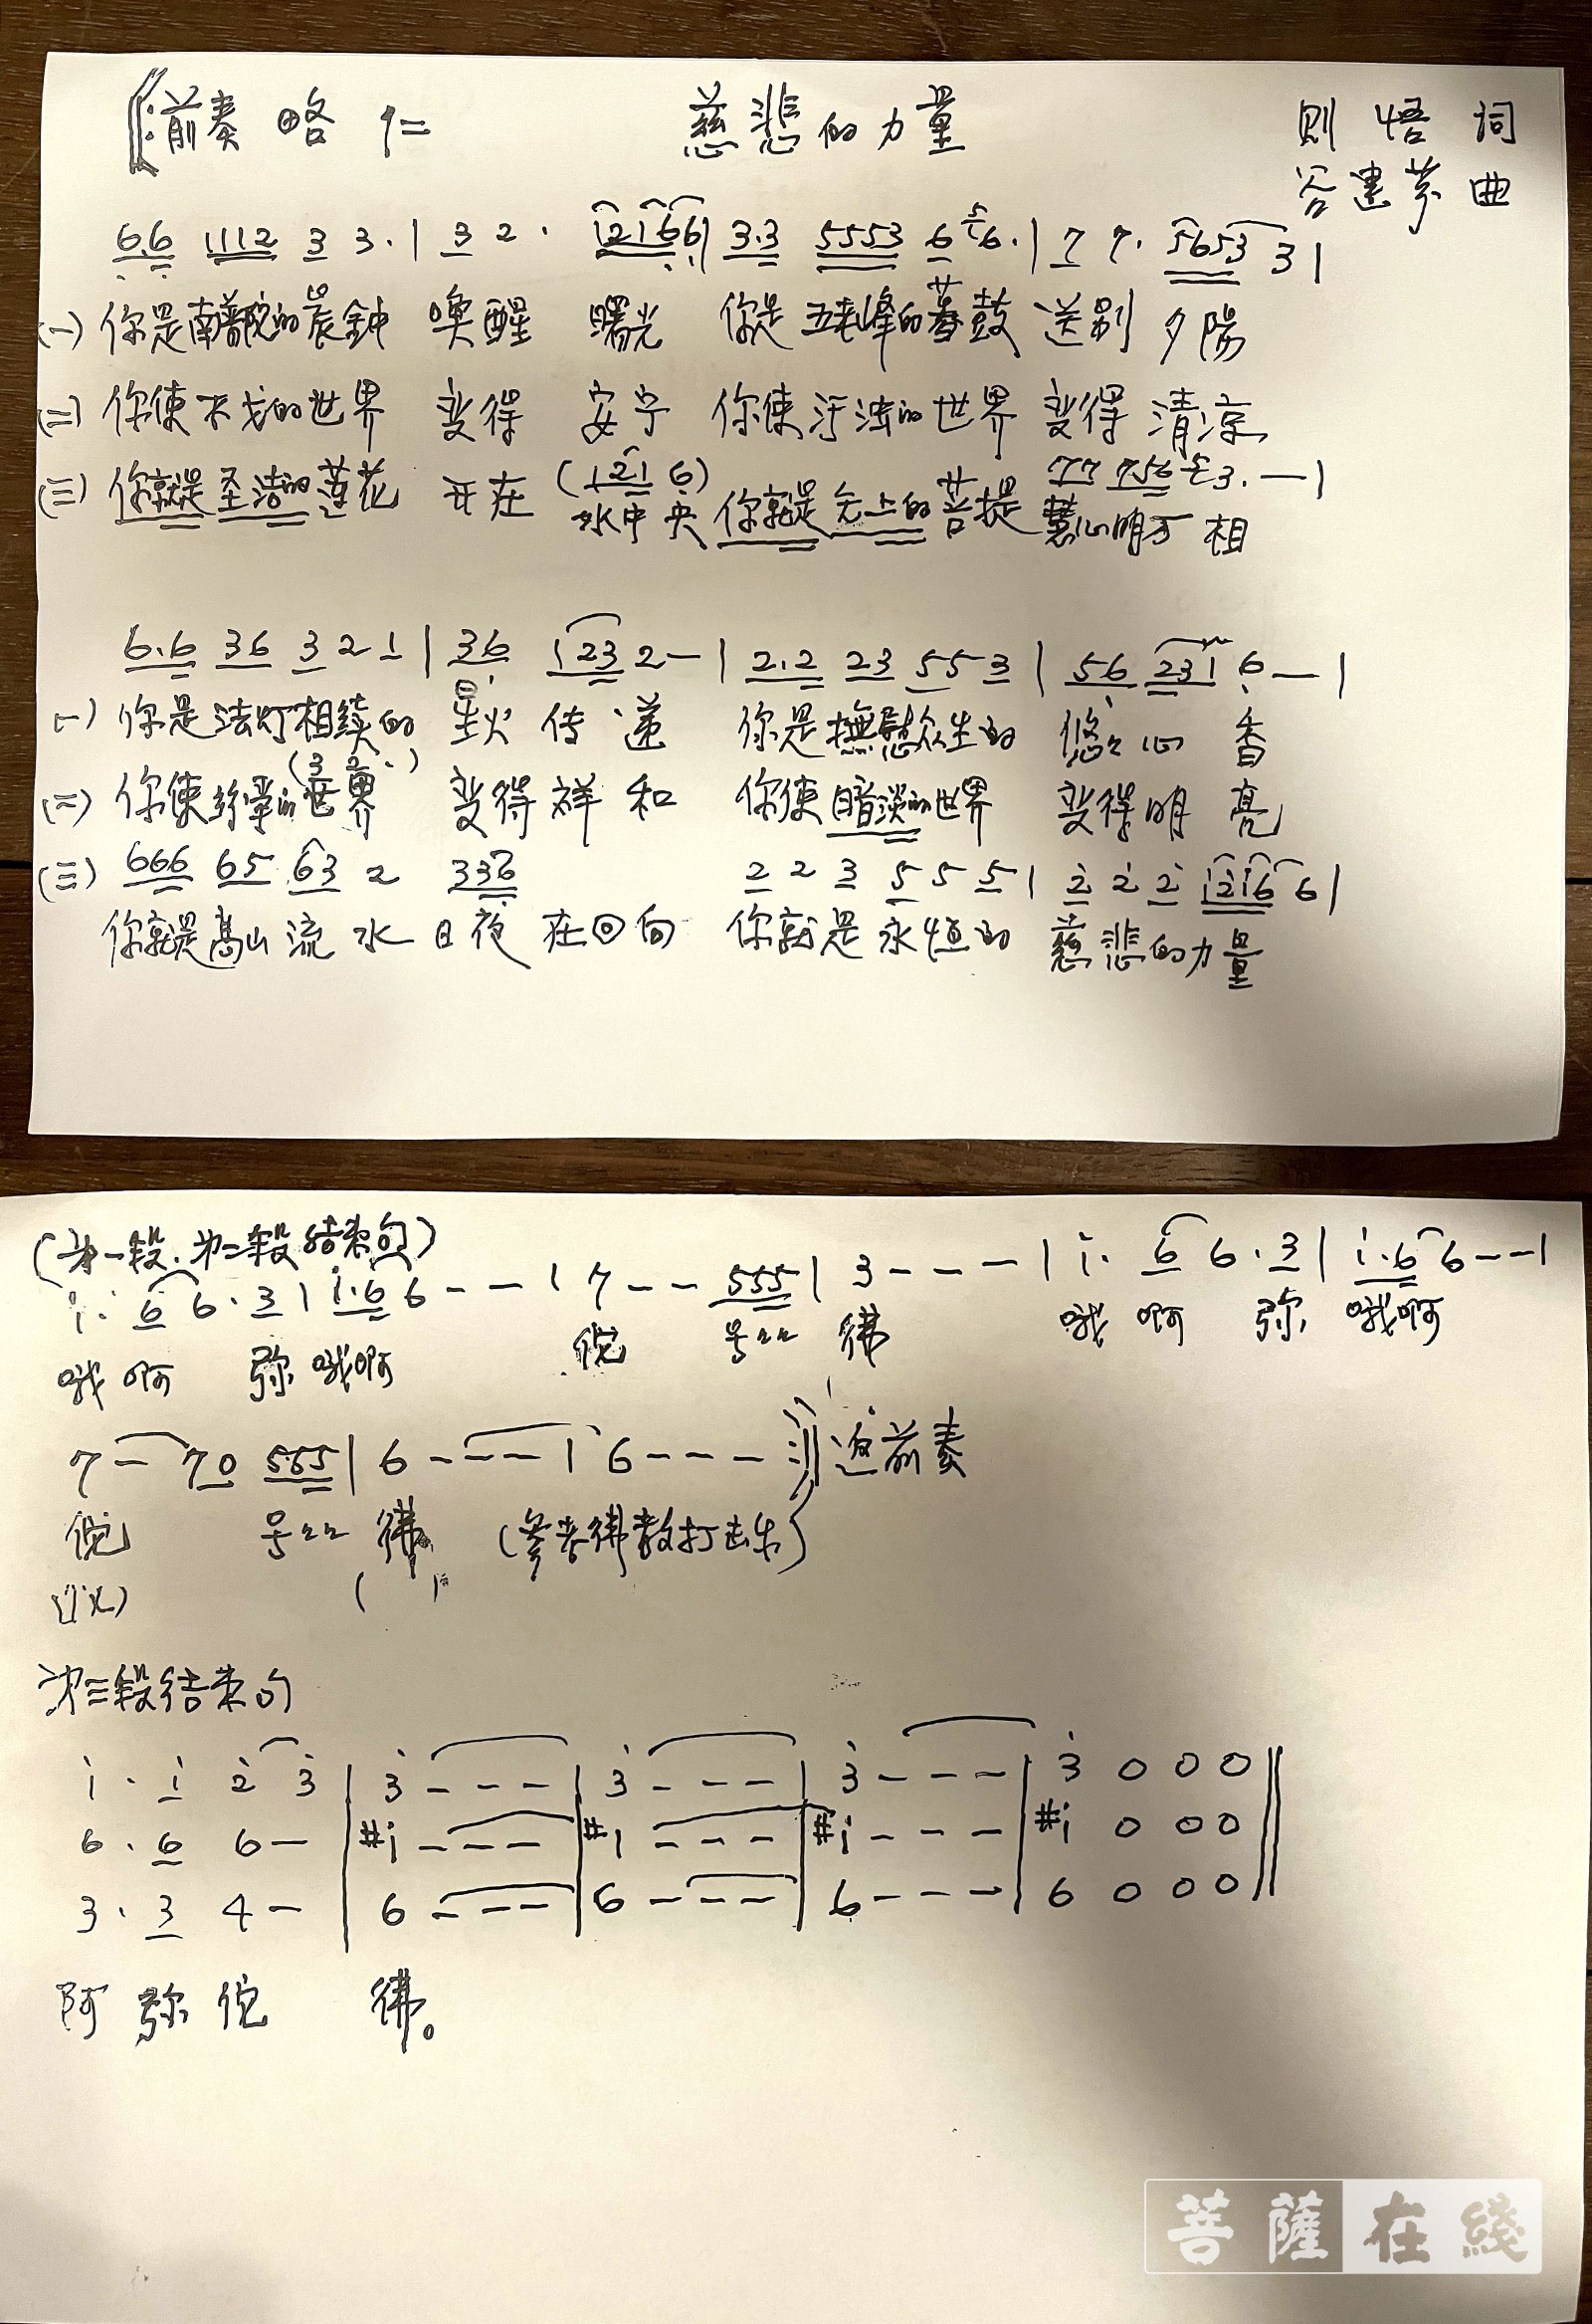 前奏 略 1=
慈悲的力量
则悟 词
谷建芬 曲
6.6 1112 3 3. | 3 2 . 12166 | 3.3 5553 6 5 6. | 7 7. 5653 3 |
(一) 你是南普陀的晨钟 唤醒 曙光 你是五老峰的暮鼓 送别 夕陽
(二) 你使 的世界 变得 安宁 你使污浊的世界 变得 清凉
(121 6) 77 756 3. — |
(三) 你就是圣洁的莲花 开在 水中央 你就是无上的菩提 慧心明万相
6.6 36 3 2 1 | 36 123 2 — | 2.2 23 5 5 3 | 56 231 6 — |
(一) 你是法灯相续的 星火 传递 你是撫慰众生的 悠々心 香
(3 2 .)
(二) 你使 的世界 变得祥和 你使暗淡的世界 变得明 亮
(三) 666 65 63 2 336 2 2 3 5 5 5 | 2 2 2 1216 6 |
你就是高山流水日夜在回向 你就是永恒的 慈悲的力量
(第一段.第二段结束句)
i. 6 6 . 3 | i.6 6 - - | 7 - - 555 | 3 - - - | i. 6 6 . 3 | i.6 6 - - |
哦啊 弥 哦啊 佗 号 佛 哦啊 弥 哦啊
7 — 70 555 | 6 - - - | 6 - - - :‖ 返前奏
佗 号 佛 (参考佛教打击乐)
第三段结束句
i . i 2 3 | 3 - - - | 3 - - - | 3 - - - | 3 0 0 0 ‖
6 . 6 6 — | #i - - - | #i - - - | #i - - - | #i 0 0 0 ‖
3 . 3 4 — | 6 - - - | 6 - - - | 6 - - - | 6 0 0 0 ‖
阿弥佗 佛。
菩薩在綫